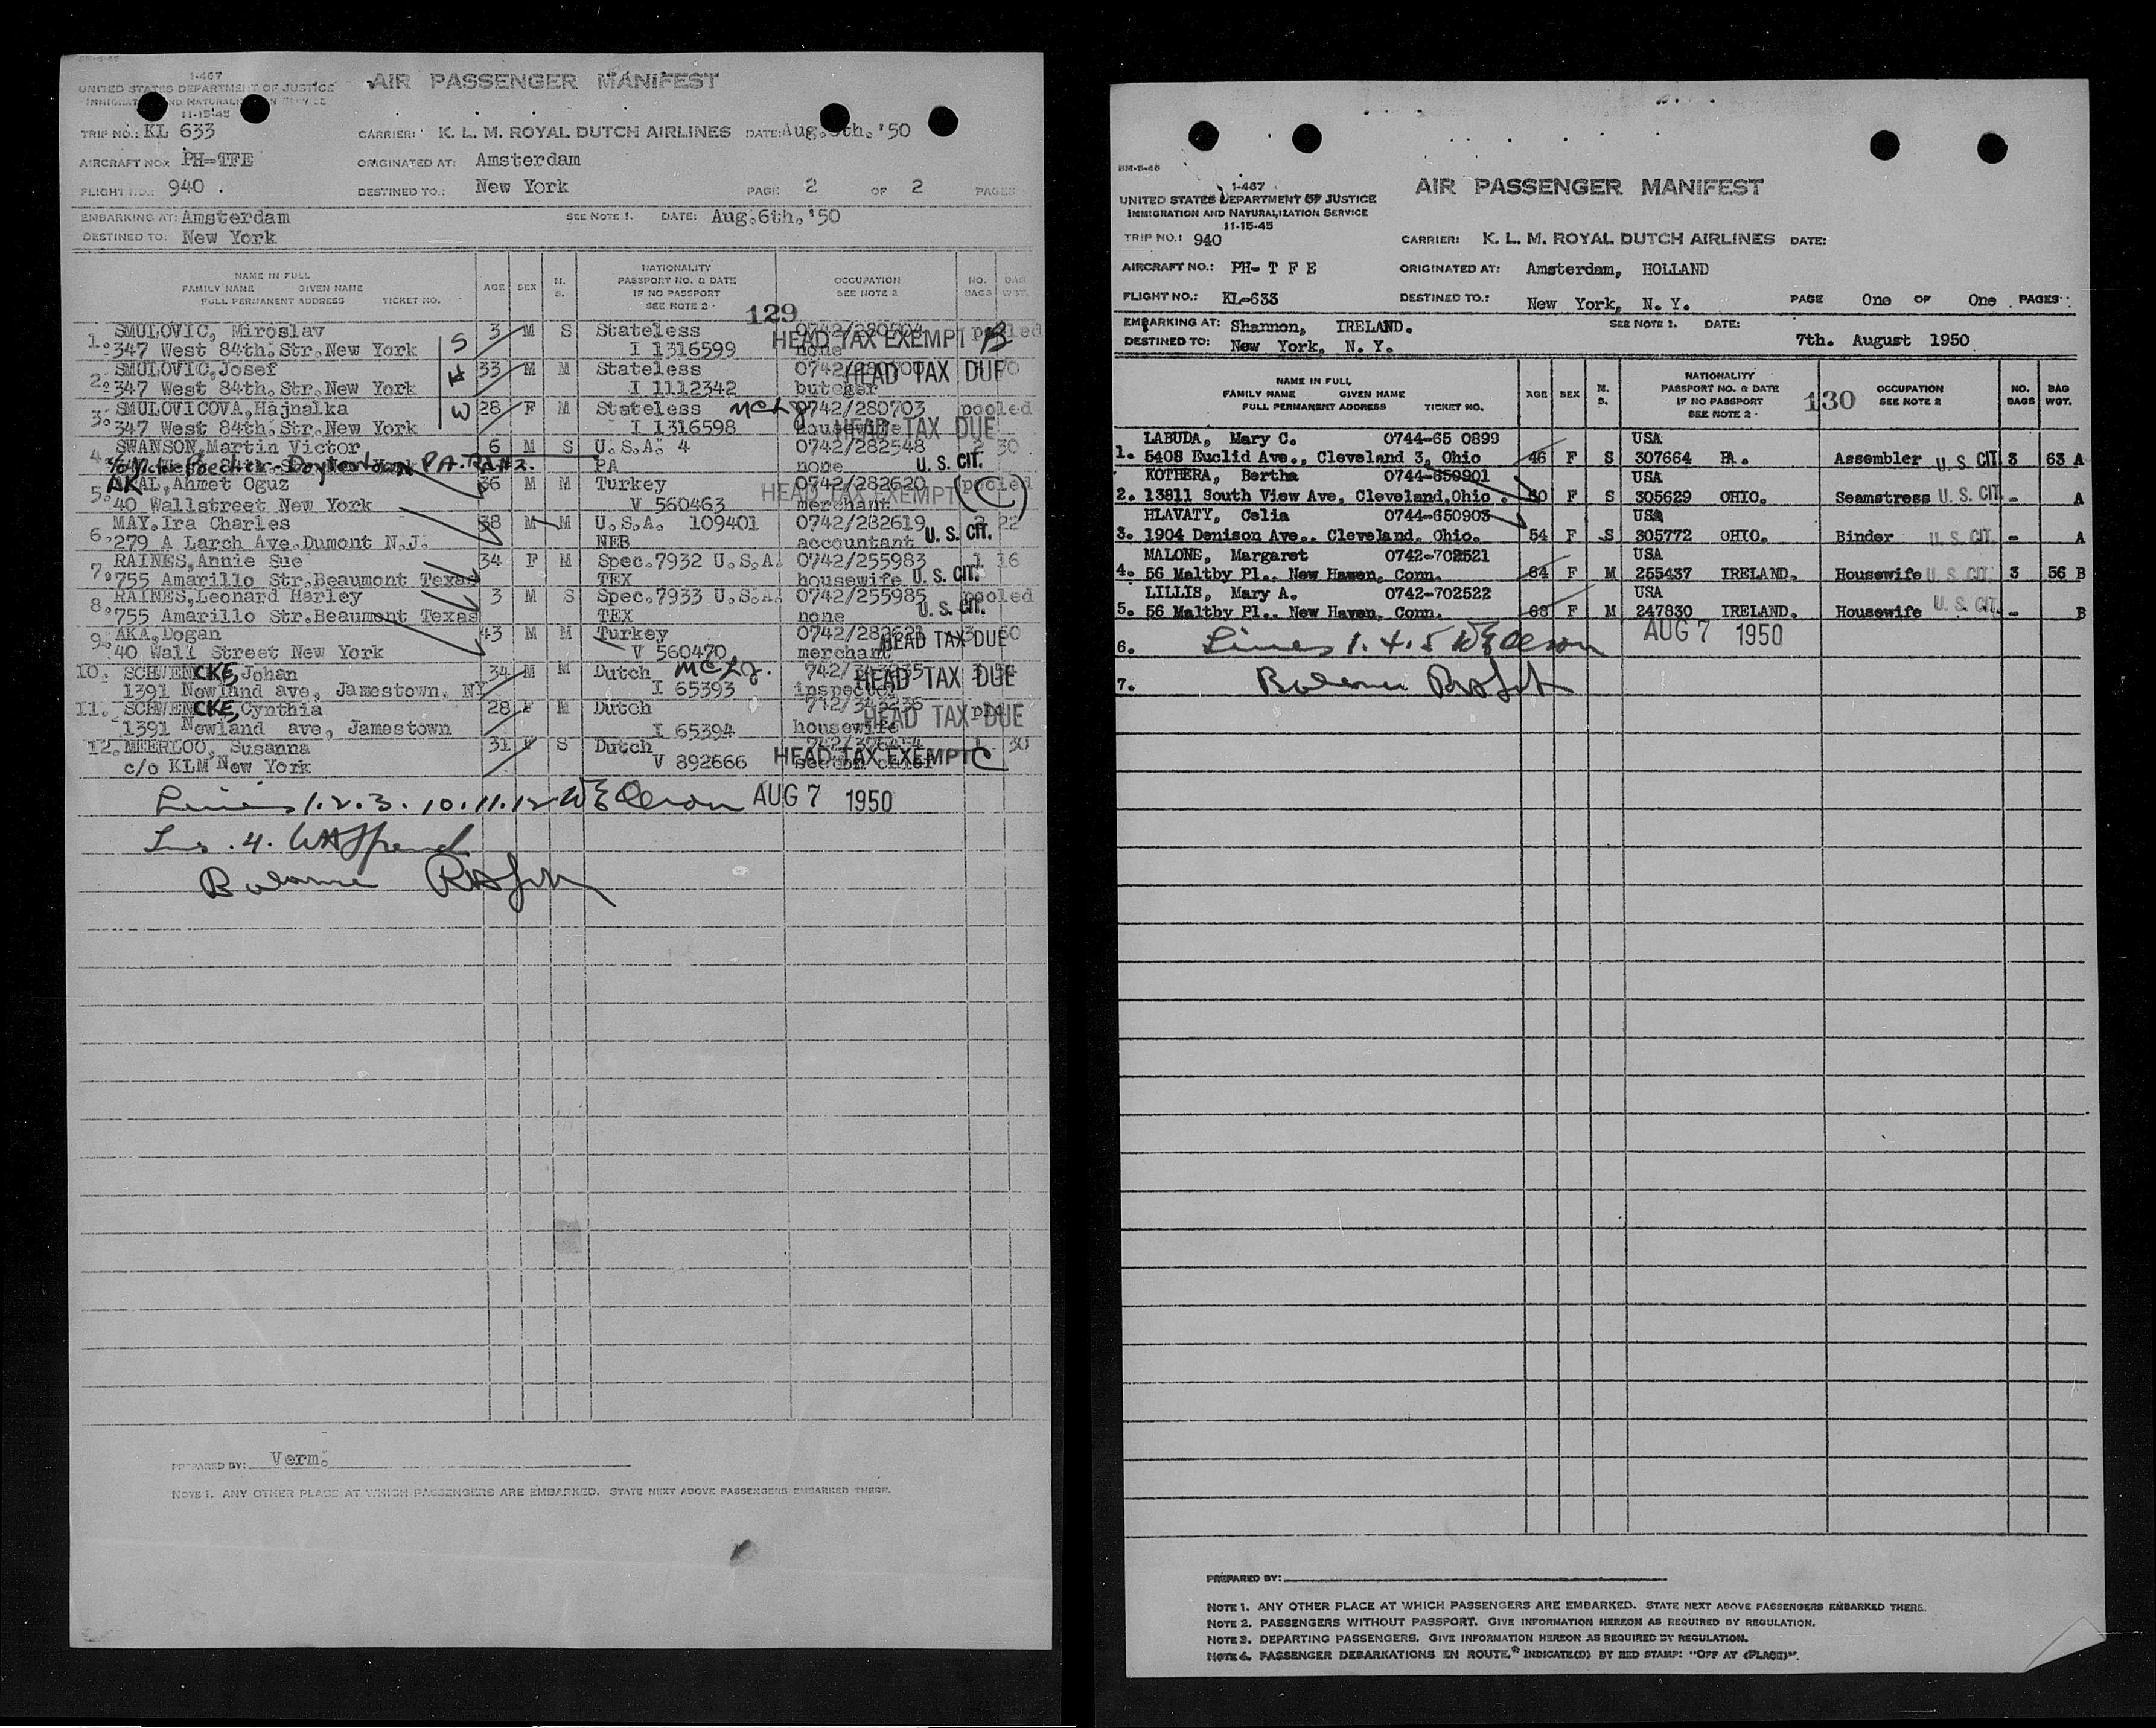 I-467
UNITED STATES DEPARTMENT OF JUSTICE
AIR PASSENGER MANIFEST
11-15-45
TRIP NO.: KL 633 CARRIER: K. L. M. ROYAL DUTCH AIRLINES DATE: Aug. th. '50
AIRCRAFT NO.: PH-TFE ORIGINATED AT: Amsterdam
FLIGHT NO.: 940 . DESTINED TO.: New York PAGE 2 OF 2 PAGES
EMBARKING AT: Amsterdam SEE NOTE 1. DATE: Aug.6th.'50
DESTINED TO: New York
NAME IN FULL
FAMILY NAME GIVEN NAME
FULL PERMANENT ADDRESS TICKET NO.
AGE SEX M. S.
NATIONALITY
PASSPORT NO. & DATE
IF NO PASSPORT
SEE NOTE 2 .
OCCUPATION
SEE NOTE 2
NO. BAGS BAG WGT.
129
1. SMULOVIC, Miroslav 3 M S Stateless 0742/280504 pooled
347 West 84th.Str.New York S I 1316599 none HEAD TAX EXEMPT B
2. SMULOVIC,Josef 33 M M Stateless 70
347 West 84th.Str.New York H I 1112342 butcher HEAD TAX DUE
3. SMULOVICOVA,Hajnalka 28 F M Stateless 0742/280703 pooled
347 West 84th.Str.New York W I 1316598 housewife HEAD TAX DUE
4. SWANSON,Martin Victor 6 M S U.S.A. 4 0742/282548 2 30
Doylestown PA. Rd #2. PA none U. S. CIT.
5. AKAL,Ahmet Oguz 36 M M Turkey 0742/282620 pooled
40 Wallstreet New York V 560463 merchant HEAD TAX EXEMPT (C)
6. MAY.Ira Charles 38 M M U.S.A. 109401 0742/282619 22
279 A Larch Ave.Dumont N.J. NEB accountant U. S. CIT.
7. RAINES,Annie Sue 34 F M Spec.7932 U.S.A. 0742/255983 1 16
755 Amarillo Str.Beaumont Texas TEX housewife U. S. CIT.
8. RAINES,Leonard Harley 3 M S Spec.7933 U.S.A. 0742/255985 pooled
755 Amarillo Str.Beaumont Texas TEX none U. S. CIT.
9. AKA,Dogan 43 M M Turkey 0742/282621 3 60
40 Wall Street New York V 560470 merchant HEAD TAX DUE
10. SCHWENCKE,Johan 34 M M Dutch
1391 Newland ave, Jamestown, NY I 65393 inspector HEAD TAX DUE
11. SCHWENCKE,Cynthia 28 F M Dutch
1391 Newland ave, Jamestown I 65394 housewife HEAD TAX DUE
12. MEERLOO, Susanna 31 F S Dutch 1 30
c/o KLM New York V 892666 section chief HEAD TAX EXEMPT C
Lines 1.2.3.10.11.12 AUG 7 1950
Balance
PREPARED BY: Verm.
NOTE 1. ANY OTHER PLACE AT WHICH PASSENGERS ARE EMBARKED. STATE NEXT ABOVE PASSENGERS EMBARKED THERE.
BM-5-46
I-467
UNITED STATES DEPARTMENT OF JUSTICE
IMMIGRATION AND NATURALIZATION SERVICE
11-15-45
AIR PASSENGER MANIFEST
TRIP NO.: 940 CARRIER: K. L. M. ROYAL DUTCH AIRLINES DATE:
AIRCRAFT NO.: PH- T F E ORIGINATED AT: Amsterdam, HOLLAND
FLIGHT NO.: KL-633 DESTINED TO.: New York, N. Y. PAGE One OF One PAGES
EMBARKING AT: Shannon, IRELAND. SEE NOTE 1. DATE:
DESTINED TO: New York, N. Y. 7th. August 1950
NAME IN FULL
FAMILY NAME GIVEN NAME
FULL PERMANENT ADDRESS TICKET NO.
AGE SEX M. S.
NATIONALITY
PASSPORT NO. & DATE
IF NO PASSPORT
SEE NOTE 2 .
130
OCCUPATION
SEE NOTE 2
NO. BAGS BAG WGT.
LABUDA, Mary C. 0744-65 0899 USA
1. 5408 Euclid Ave., Cleveland 3, Ohio 46 F S 307664 PA. Assembler U. S. CIT. 3 63 A
KOTHERA, Bertha 0744-650901 USA
2. 13811 South View Ave, Cleveland,Ohio . F S 305629 OHIO. Seamstress U. S. CIT. - A
HLAVATY, Celia 0744-650903 USA
3. 1904 Denison Ave., Cleveland, Ohio. 54 F S 305772 OHIO. Binder U. S. CIT. - A
MALONE, Margaret 0742-702521 USA
4. 56 Maltby Pl., New Haven, Conn. 64 F M 255437 IRELAND. Housewife U. S. CIT. 3 56 B
LILLIS, Mary A. 0742-702522 USA
5. 56 Maltby Pl., New Haven, Conn. 68 F M 247830 IRELAND. Housewife U. S. CIT. - B
6. Lines 1. 4. 5 AUG 7 1950
7. Balance
PREPARED BY:
NOTE 1. ANY OTHER PLACE AT WHICH PASSENGERS ARE EMBARKED. STATE NEXT ABOVE PASSENGERS EMBARKED THERE.
NOTE 2. PASSENGERS WITHOUT PASSPORT. GIVE INFORMATION HEREON AS REQUIRED BY REGULATION.
NOTE 3. DEPARTING PASSENGERS. GIVE INFORMATION HEREON AS REQUIRED BY REGULATION.
NOTE 4. PASSENGER DEBARKATIONS EN ROUTE. INDICATE(D) BY RED STAMP: "OFF AT (PLACE)".